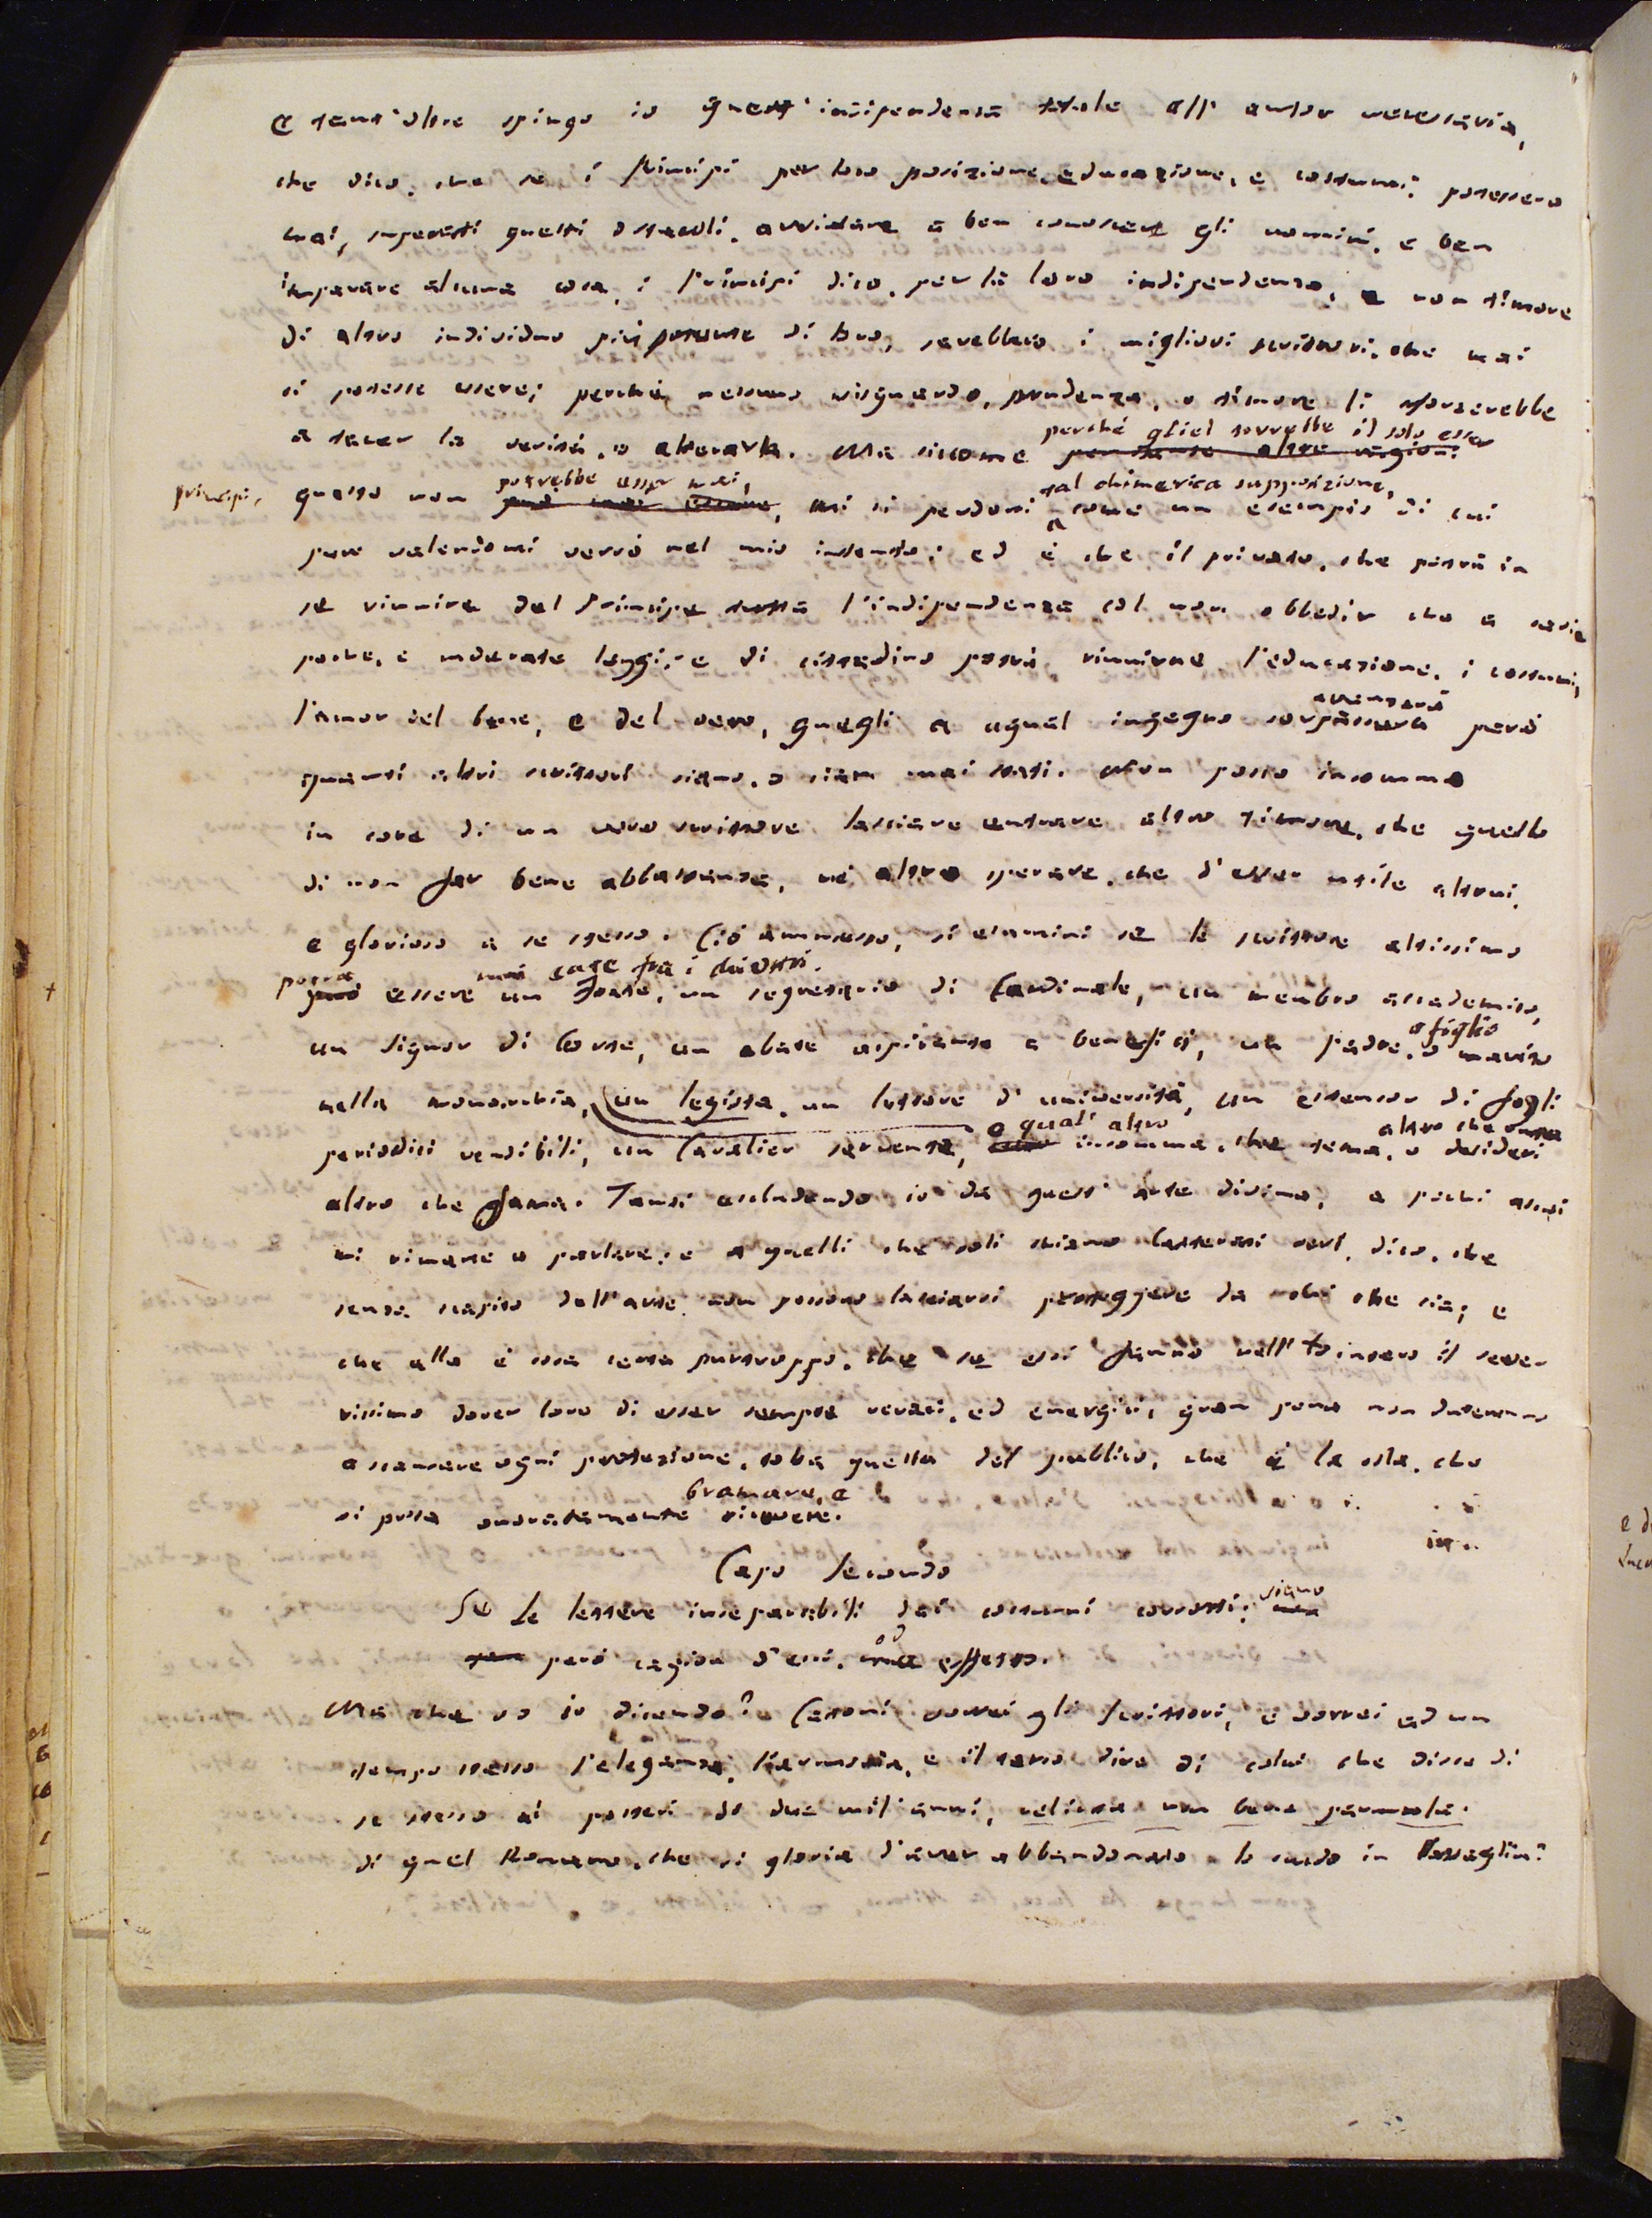 E tant'oltre spingo io quest'indipendenza totale all'autor necessaria,
che dico, che se i Principi per loro posizione, educazione, e costumi potessero
mai, superati questi ostacoli, arrivare a ben conoscere gli uomini, e ben
imparare alcuna cosa, i Principi dico, per la loro indipendenza, e non timore
di altro individuo più potente di loro, sarebbero i migliori scrittori, che mai
si potesse essere; perchè nessuno risguardo, prudenza, o timore li sforzerebbe
perché gliel torrebbe il solo esser
a tacer la verità, o alterarla. Ma siccome per altre ragioni
principi, questo non potrebbe esser mai,
tal chimerica supposizione,
mi si perdoni come un esempio di cui
pure valendomi verrò nel mio intento; ed è che il privato, che potrà in
se riunire del Principe tutta l'indipendenza col non obbedir che a savie
poche, e moderate leggi, e di cittadino potrà riunirne l'educazione, i costumi,
avanzerà
l'amor del bene, e del vero, quegli a egual ingegno sorpasserà però
quanti altri scrittori siano, o sian mai stati. Non posso insomma
in core di un vero scrittore lasciare entrare altro timore, che quello
di non far bene abbastanza, nè altro sperare, che d'esser utile altrui,
e glorioso a se stesso. Ciò ammesso, si esamini se lo scrittore altissimo
potrà mai
essere un frate, un segretario di Cardinale, un membro accademico,
o figlio
un Signor di Corte, un abate aspirante a benefici, un padre, o marito
nella monarchia, un legista, un lettore d'università, un estensor di fogli
o qual' altro
altro che
periodici vendibili, un Cavalier servente, insomma, che tema, o desideri
altro che fama. Tanti escludendo io da quest'arte divina, a pochi assai
mi rimane a parlare: e a quelli che soli chiamo letterati veri, dico, che
senza scapito dell'arte non possono lasciarsi proteggere da chi che sia; e
che ella è cosa certa purtroppo, che se essi fanno nell'intero il sever
rissimo dover loro di esser sempre veraci, ed energici, gran pena non dureranno
a scansare ogni protezione, tolta quella del pubblico, che è la sola, che
bramare, e
si possa onoratamente ricevere.
Capo Secondo
Se le lettere inseparabili dai costumi corrotti, siano
però cagion d'essi, o effetto.
Ma che vo io dicendo? Catoni vorrei gli Scrittori, e vorrei ad un
tempo stesso l'eleganza, l'armonia, e il terso dire di colui che disse di
se stesso ai posteri da due mil'anni, relicta non bene parmula.
di quel Romano, che si gloria d'aver abbandonato lo scudo in battaglia?